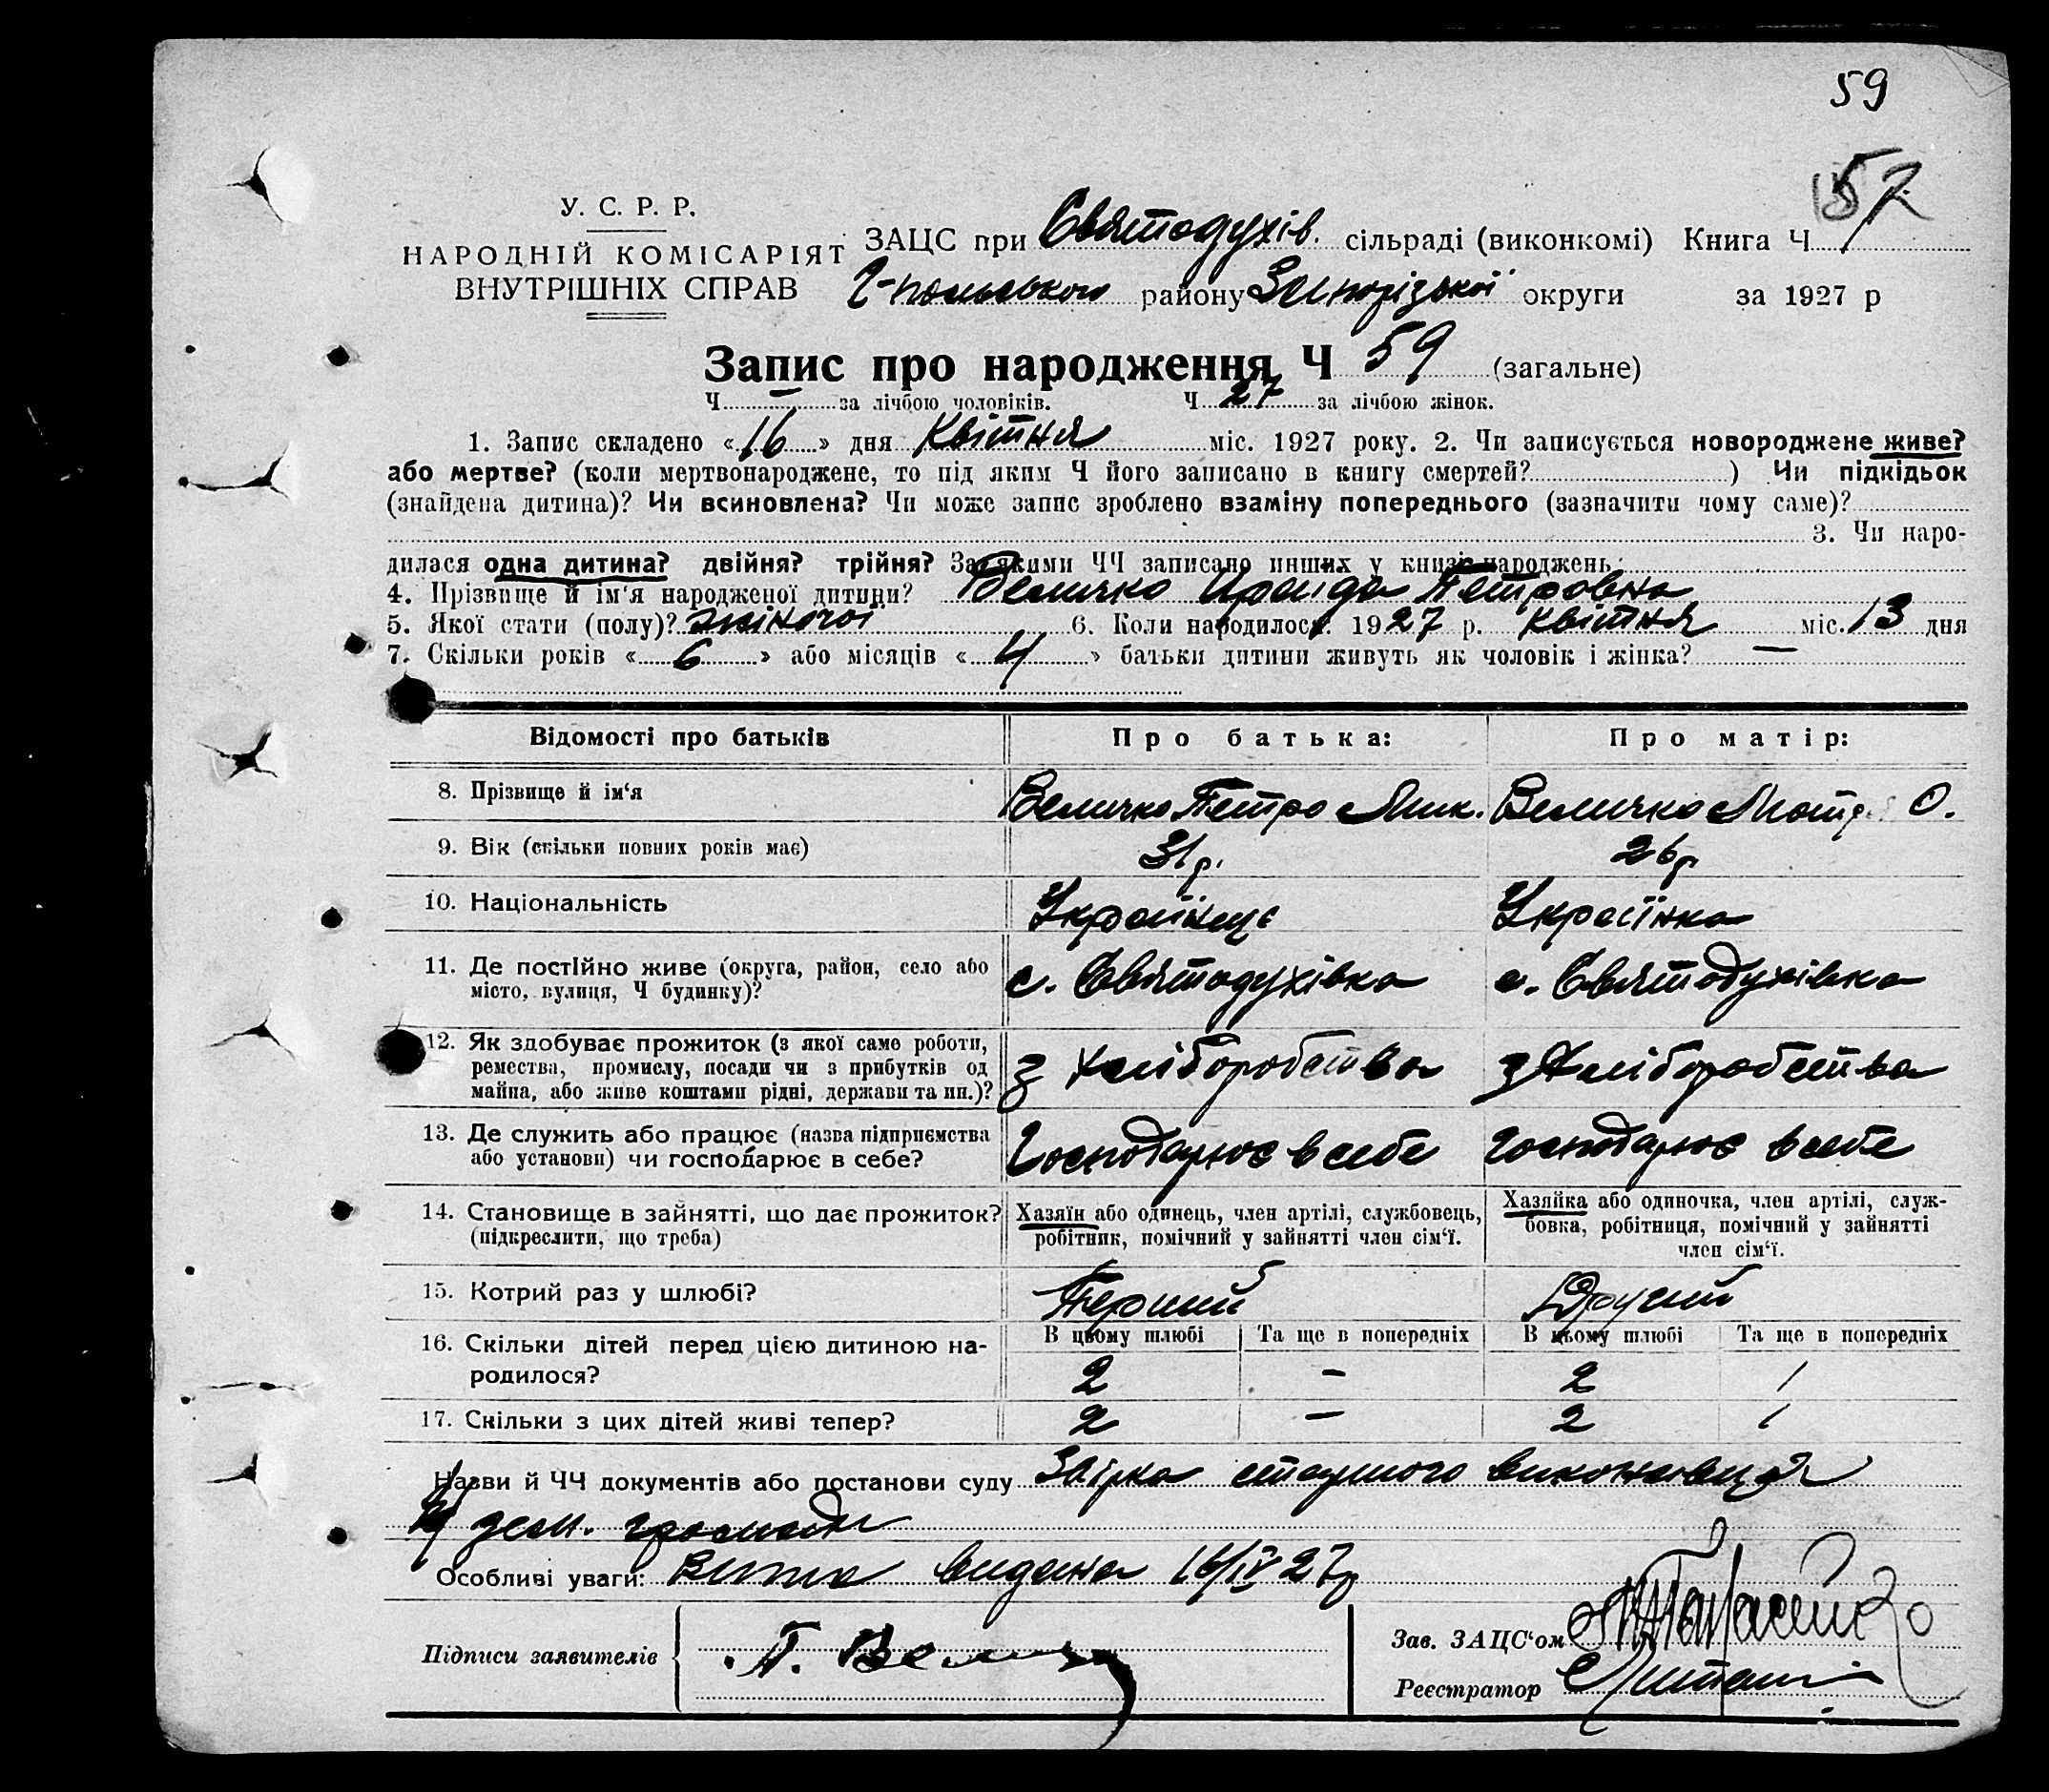 59
57
У. С. Р. Р.
НАРОДНІЙ КОМІСАРІЯТ
ВНУТРІШНІХ СПРАВ
ЗАЦС при Святодухів. сільраді (виконкомі) Книга Ч
Г-польського району Запорізької округи за 1927 р
Запис про народження Ч 59 (загальне)
Ч — за лічбою чоловіків. Ч 27 за лічбою жінок.
1. Запис складено «16» дня Квітня міс. 1927 року. 2. Чи записується новороджене живе?
або мертве? (коли мертвонароджене, то під яким Ч його записано в книгу смертей? ) Чи підкідьок
(знайдена дитина)? Чи всиновлена? Чи може запис зроблено взаміну попереднього (зазначити чому саме)?
3. Чи наро-
дилася одна дитина? двійня? трійня? За якими ЧЧ записано инших у книзі народжень
4. Прізвище й ім'я народженої дитини? Величко Ираида Петровна
5. Якої стати (полу)? жіночої 6. Коли народилося. 1927 р. Квітня міс. 13 дня
7. Скільки років «6» або місяців «4» батьки дитини живуть як чоловік і жінка? —
Відомості про батьків Про батька: Про матір:
8. Прізвище й ім'я Величко Петро Мик. Величко Мотр. О.
9. Вік (скільки повних років має) 31 р. 26 р.
10. Національність Українець Українка
11. Де постійно живе (округа, район, село або
місто, вулиця, Ч будинку)? с. Святодухівка с. Святодухівка
12. Як здобуває прожиток (з якої саме роботи,
ремества, промислу, посади чи з прибутків од
майна, або живе коштами рідні, держави та ин.)? з хліборобства з хліборобства
13. Де служить або працює (назва підприємства
або установи) чи господарює в себе? Господарює в себе господарює в себе
14. Становище в зайнятті, що дає прожиток?
(підкреслити, що треба)
Хазяїн або одинець, член артілі, службовець,
робітник, помічний у зайнятті член сім'ї.
Хазяйка або одиночка, член артілі, служ-
бовка, робітниця, помічний у зайнятті
член сім'ї.
15. Котрий раз у шлюбі? Перший Другий
В цьому шлюбі Та ще в попередніх В цьому шлюбі Та ще в попередніх
16. Скільки дітей перед цією дитиною на-
родилося? 2 — 2 1
17. Скільки з цих дітей живі тепер? 2 — 2 1
Назви й ЧЧ документів або постанови суду Звірка старшого виконавця
зем. громади
Особливі уваги: видана 16/IV 27 р
Підписи заявителів П. Велич
Зав. ЗАЦС'ом
Реєстратор